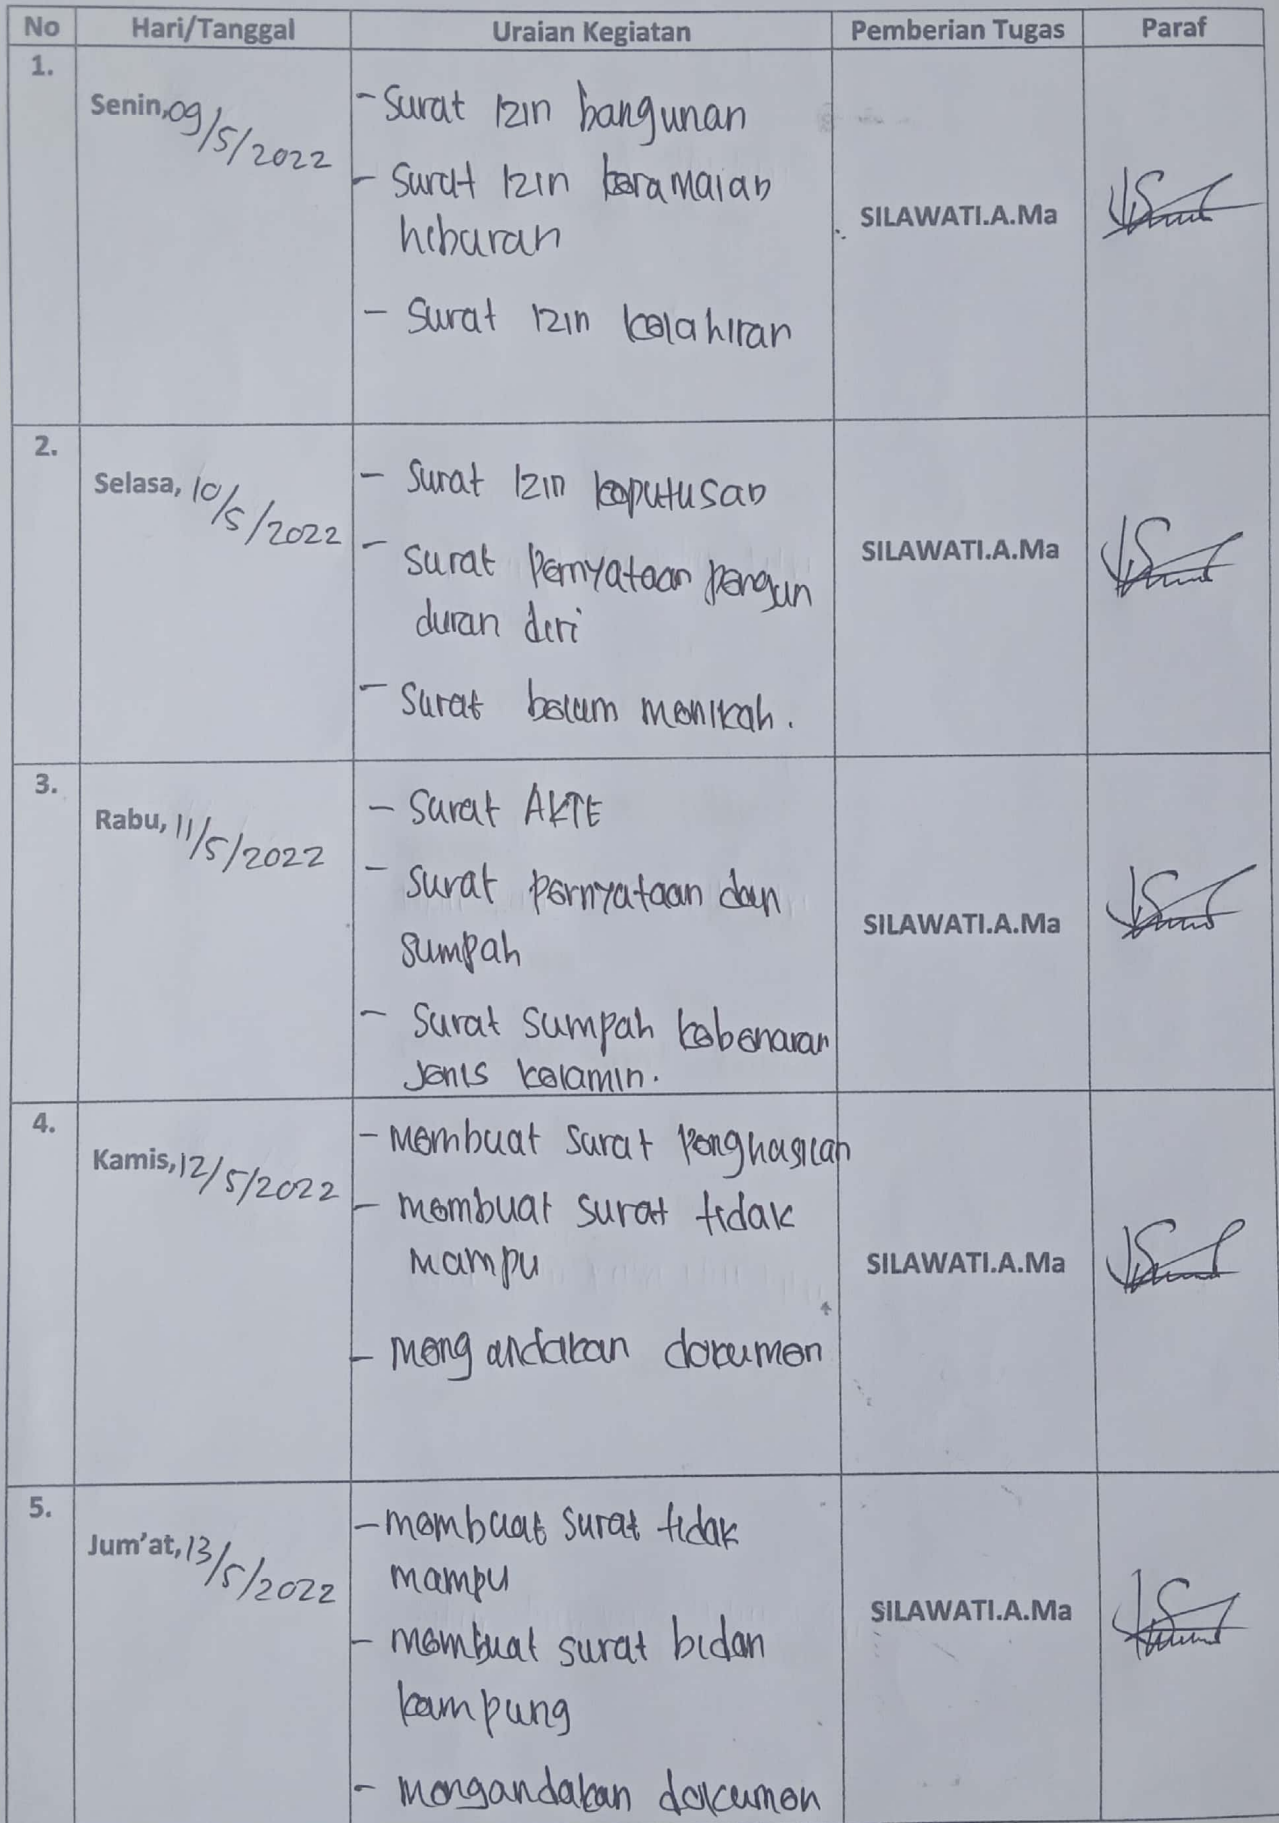 No Hari/Tanggal Uraian Kegiatan Pemberian Tugas Paraf
1.
Senin, 09/5/2022
- Surat Izin bangunan
- Surat Izin keramaian
hiburan
- Surat Izin kelahiran
SILAWATI.A.Ma
2.
Selasa, 10/5/2022
- Surat Izin keputusan
- Surat Pernyataan pengun
duran diri
- Surat belum menikah.
SILAWATI.A.Ma
3.
Rabu, 11/5/2022
- Surat AKTE
- Surat pernyataan dan
sumpah
- Surat sumpah kebenaran
Jenis kelamin.
SILAWATI.A.Ma
4.
Kamis, 12/5/2022
- Membuat surat Penghasilan
- membuat surat tidak
mampu
- meng andakan dokumen
SILAWATI.A.Ma
5.
Jum'at, 13/5/2022
- membuat surat tidak
mampu
- membuat surat bidan
kampung
- mengandakan dokumen
SILAWATI.A.Ma